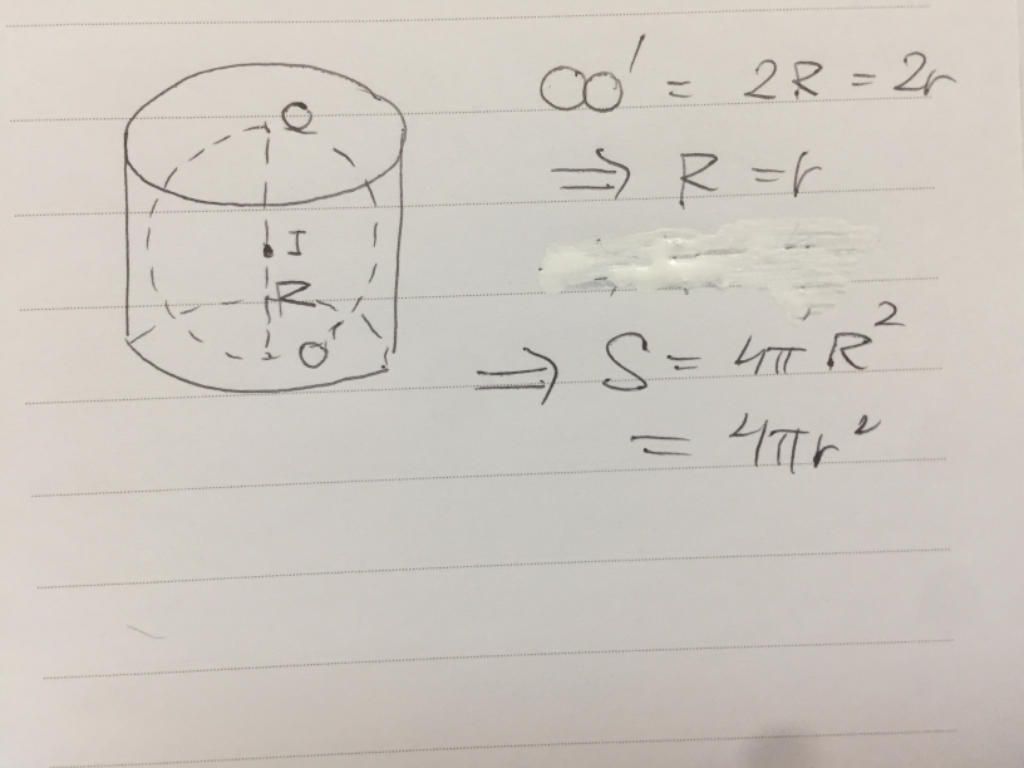 O
I
R
O'
OO' = 2R = 2r
⇒ R = r
⇒ S = 4πR²
= 4πr²